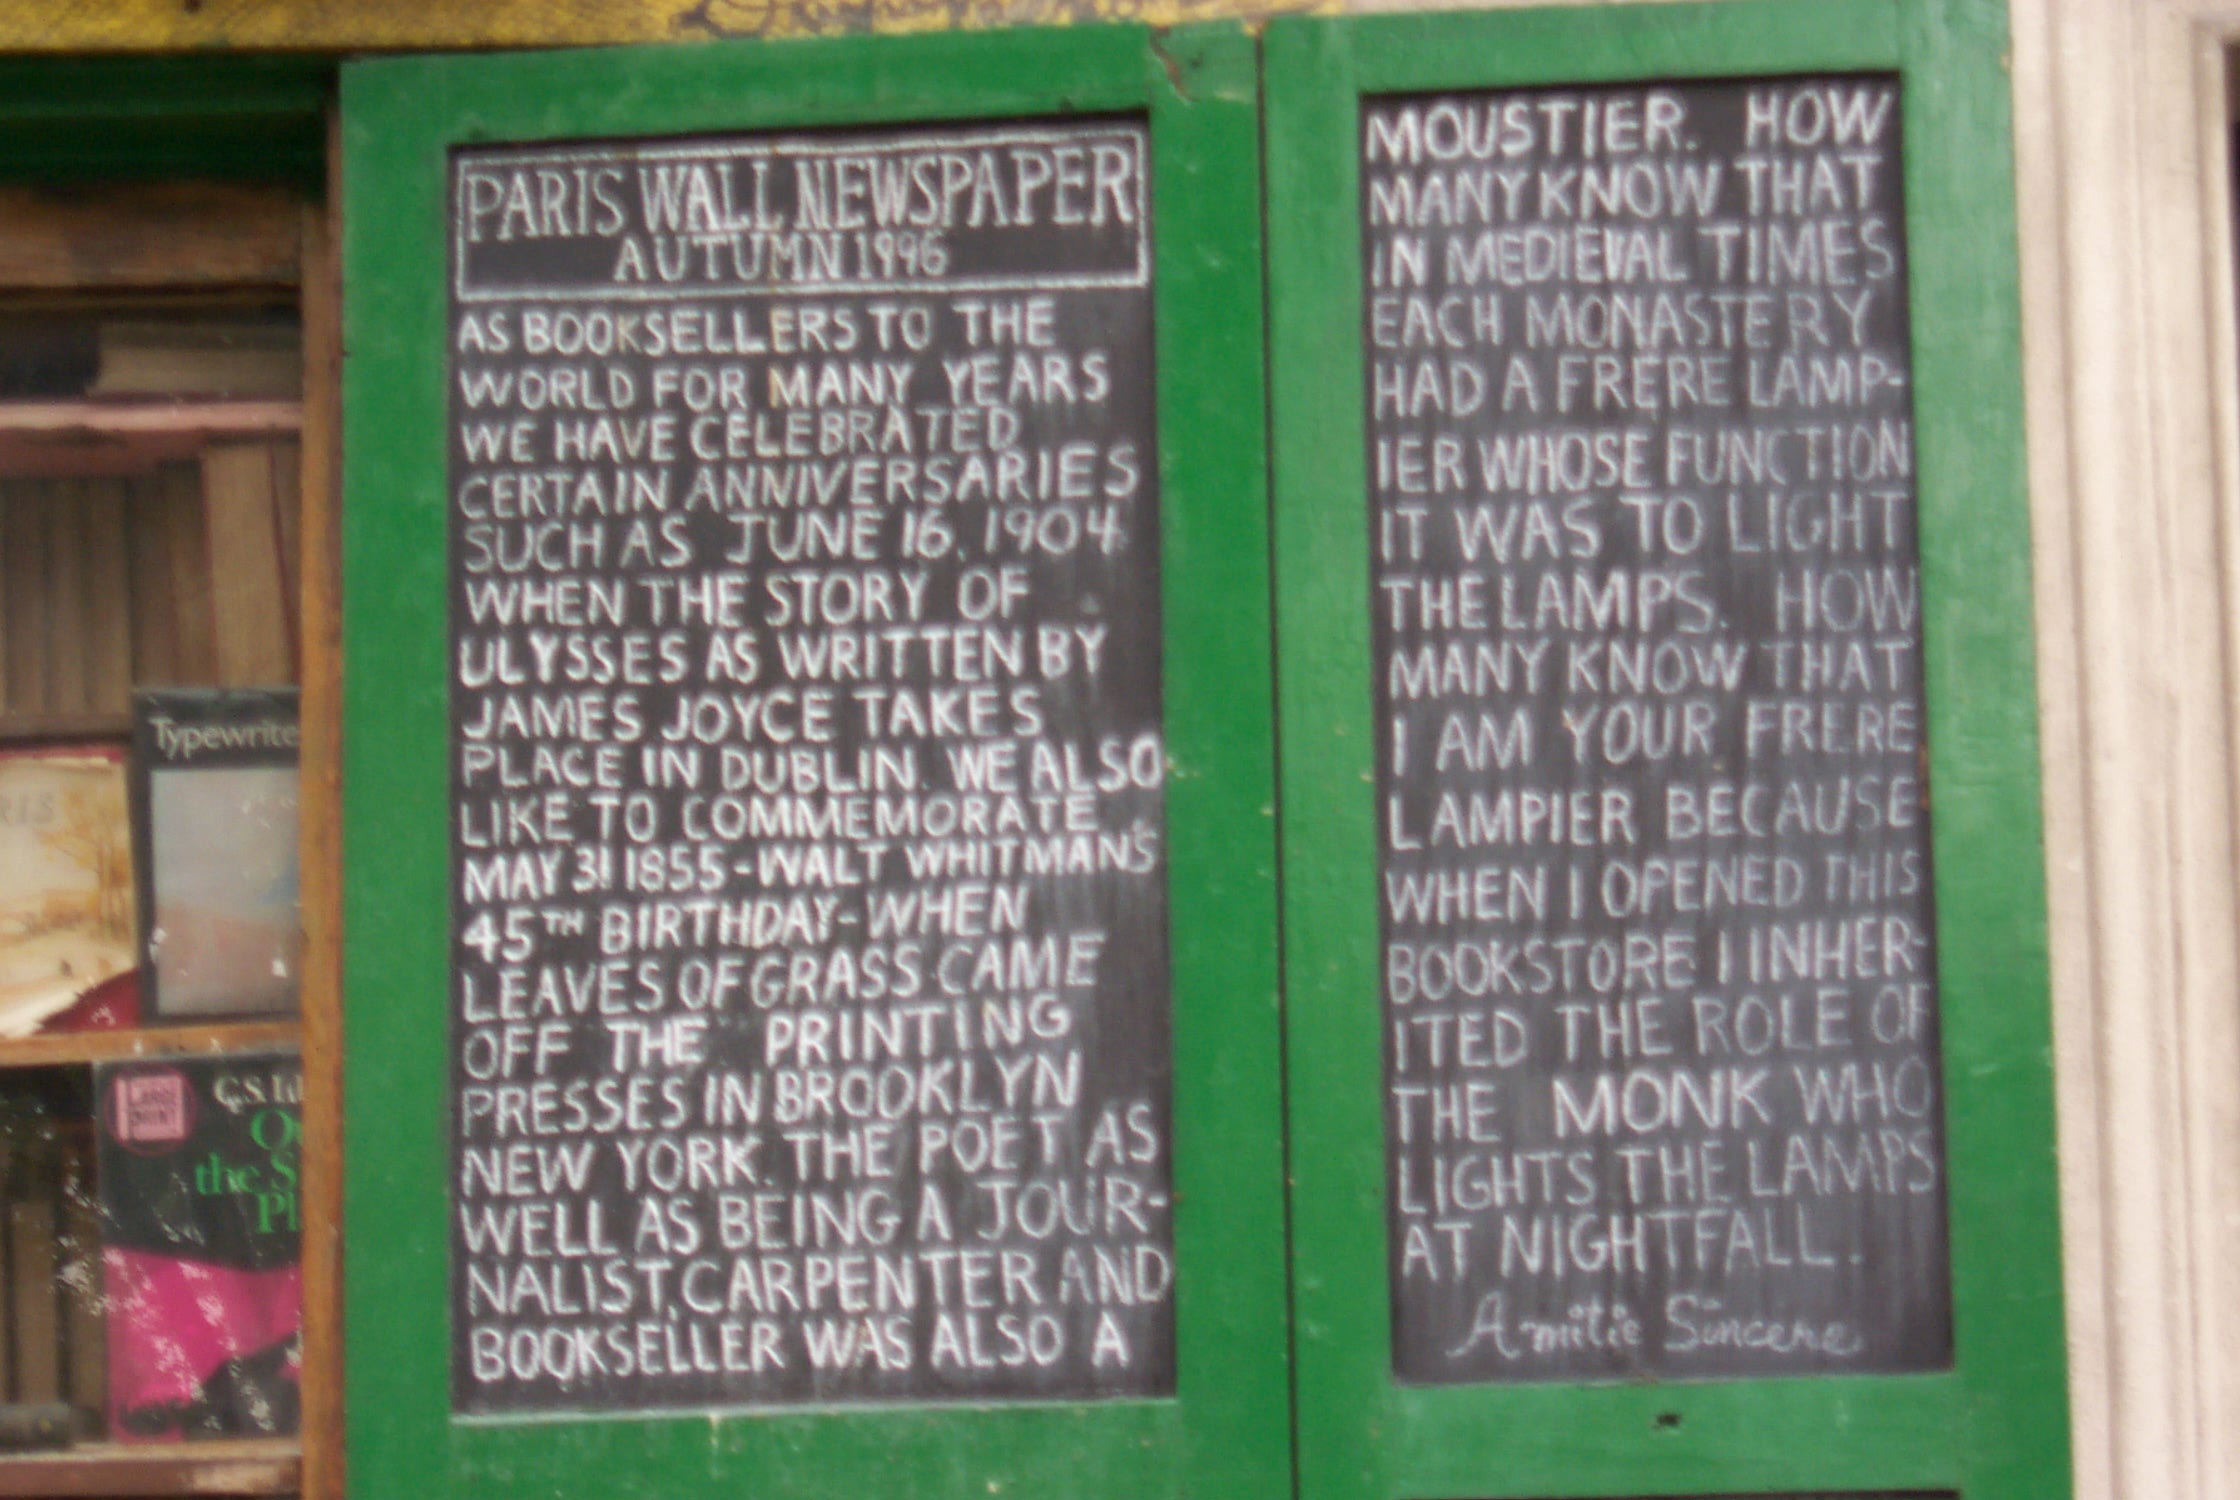 PARIS WALL NEWSPAPER
AUTUMN 1996
AS BOOKSELLERS TO THE
WORLD FOR MANY YEARS
WE HAVE CELEBRATED
CERTAIN ANNIVERSARIES
SUCH AS JUNE 16, 1904
WHEN THE STORY OF
ULYSSES AS WRITTEN BY
JAMES JOYCE TAKES
PLACE IN DUBLIN. WE ALSO
LIKE TO COMMEMORATE
MAY 31 1855 - WALT WHITMAN'S
45TH BIRTHDAY - WHEN
LEAVES OF GRASS CAME
OFF THE PRINTING
PRESSES IN BROOKLYN
NEW YORK. THE POET AS
WELL AS BEING A JOUR-
NALIST, CARPENTER AND
BOOKSELLER WAS ALSO A
MOUSTIER. HOW
MANY KNOW THAT
IN MEDIEVAL TIMES
EACH MONASTERY
HAD A FRERE LAMP-
IER WHOSE FUNCTION
IT WAS TO LIGHT
THE LAMPS. HOW
MANY KNOW THAT
I AM YOUR FRERE
LAMPIER BECAUSE
WHEN I OPENED THIS
BOOKSTORE I INHER-
ITED THE ROLE OF
THE MONK WHO
LIGHTS THE LAMPS
AT NIGHTFALL.
Amitie Sincere
Typewrite
RIS
LARGE
PRINT
G.S.
the S